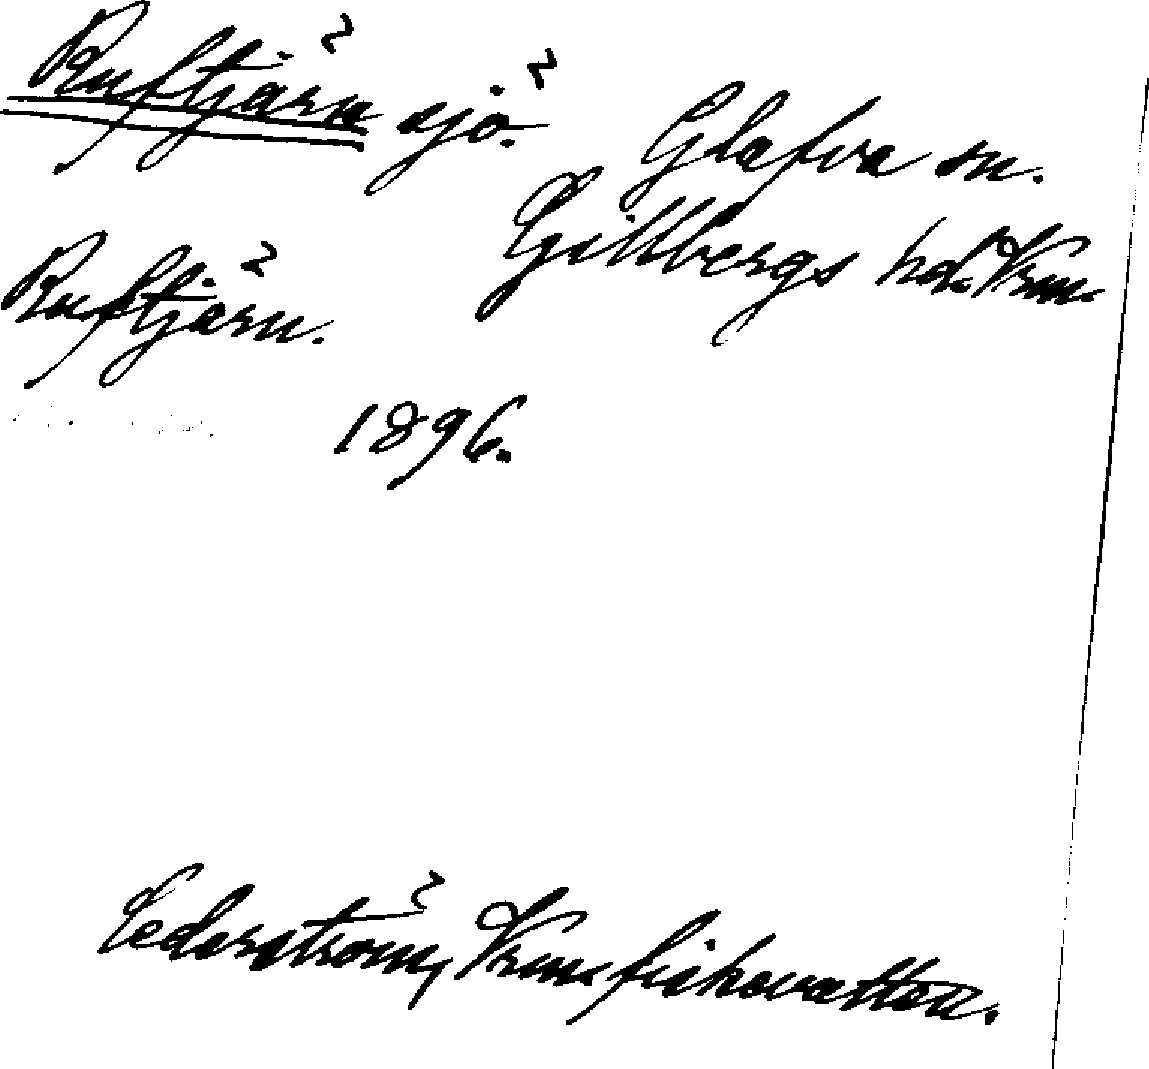 Ruftjärn sjö. Glafva sn.
Gillbergs hd. Vrm.
Ruftjärn.
1896.
Cederström, Vrm. fiskevatten.